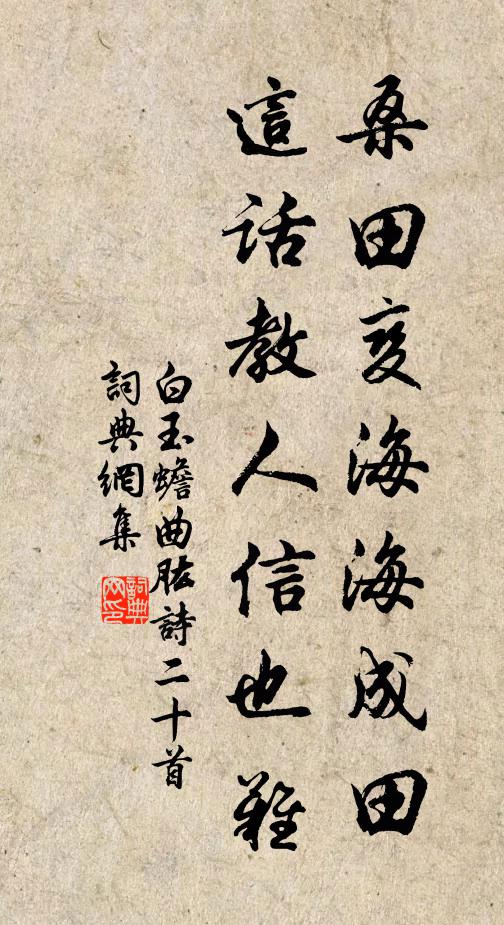 桑田变海海成田
這话教人信也難
白玉蟾曲肱詩二十首
詞典網集
詞典網印